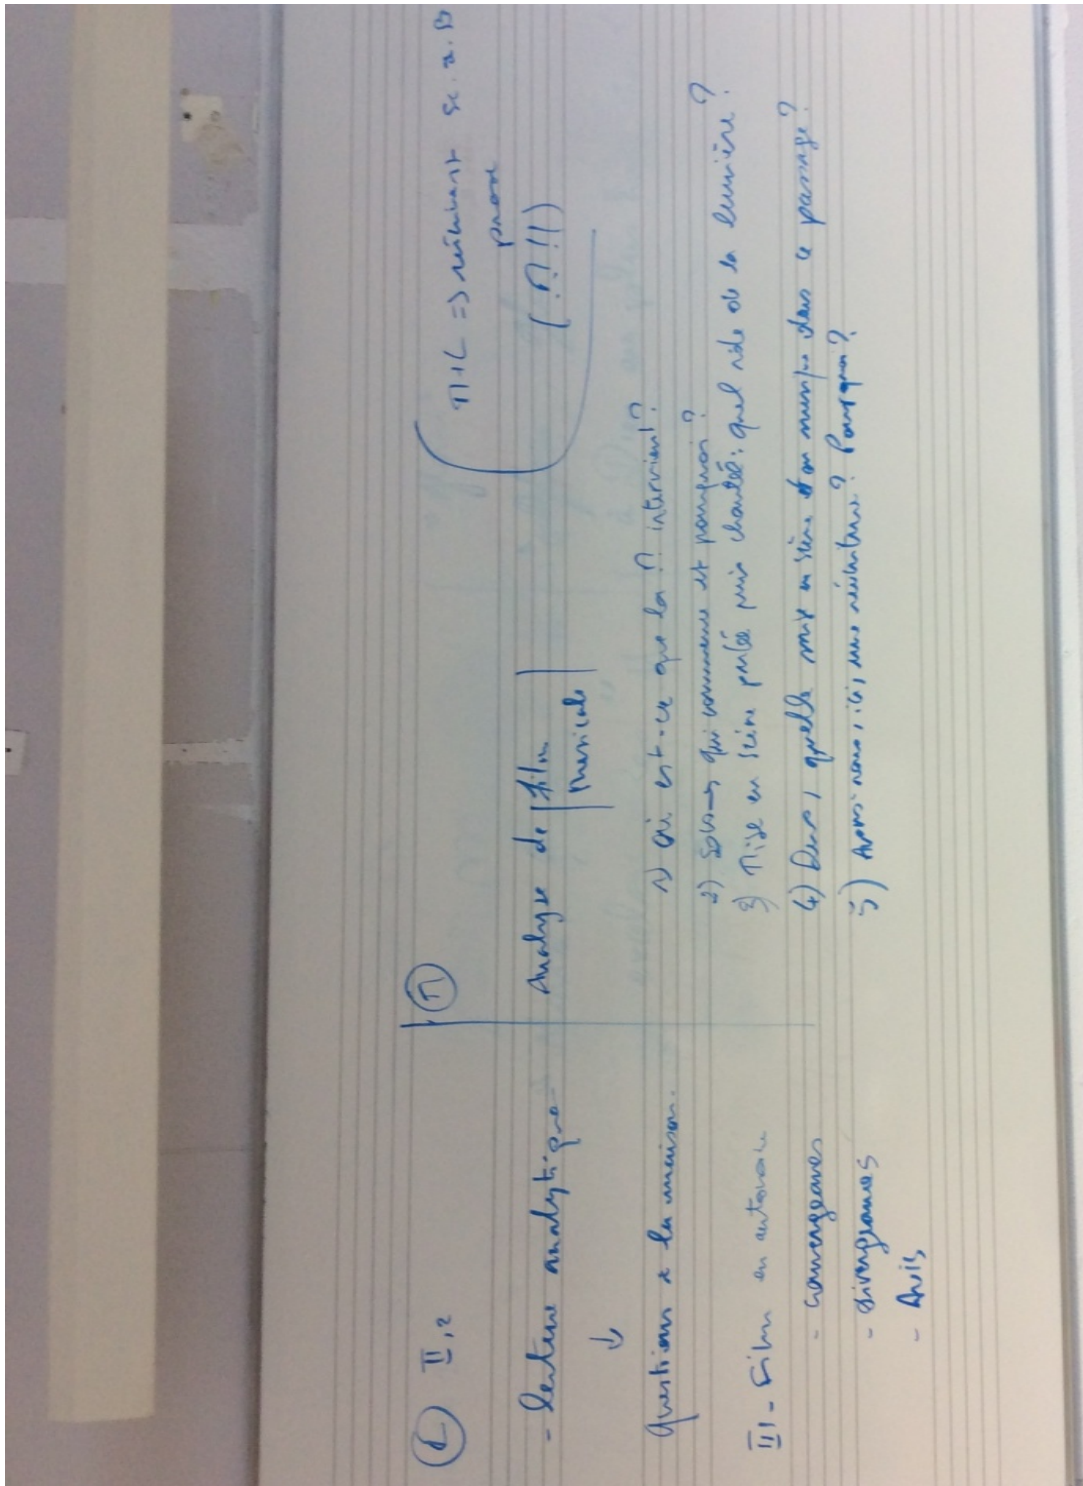 (L) II,2
- lecture analytique
↓
Questions à la maison.
III - Film en autonomie
- convergences
- divergences
- Avis
(M)
Analyse de film
musicale
1) Où est-ce que la M intervient?
2) qui commence et pourquoi?
3) Mise en scène parlée puis chantée: quel rôle de la lumière?
4) Deux, quelle mise en scène en musique dans ce passage?
5) Avons-nous, ici, une? Pourquoi?
M+L =>
prose
(M!!)